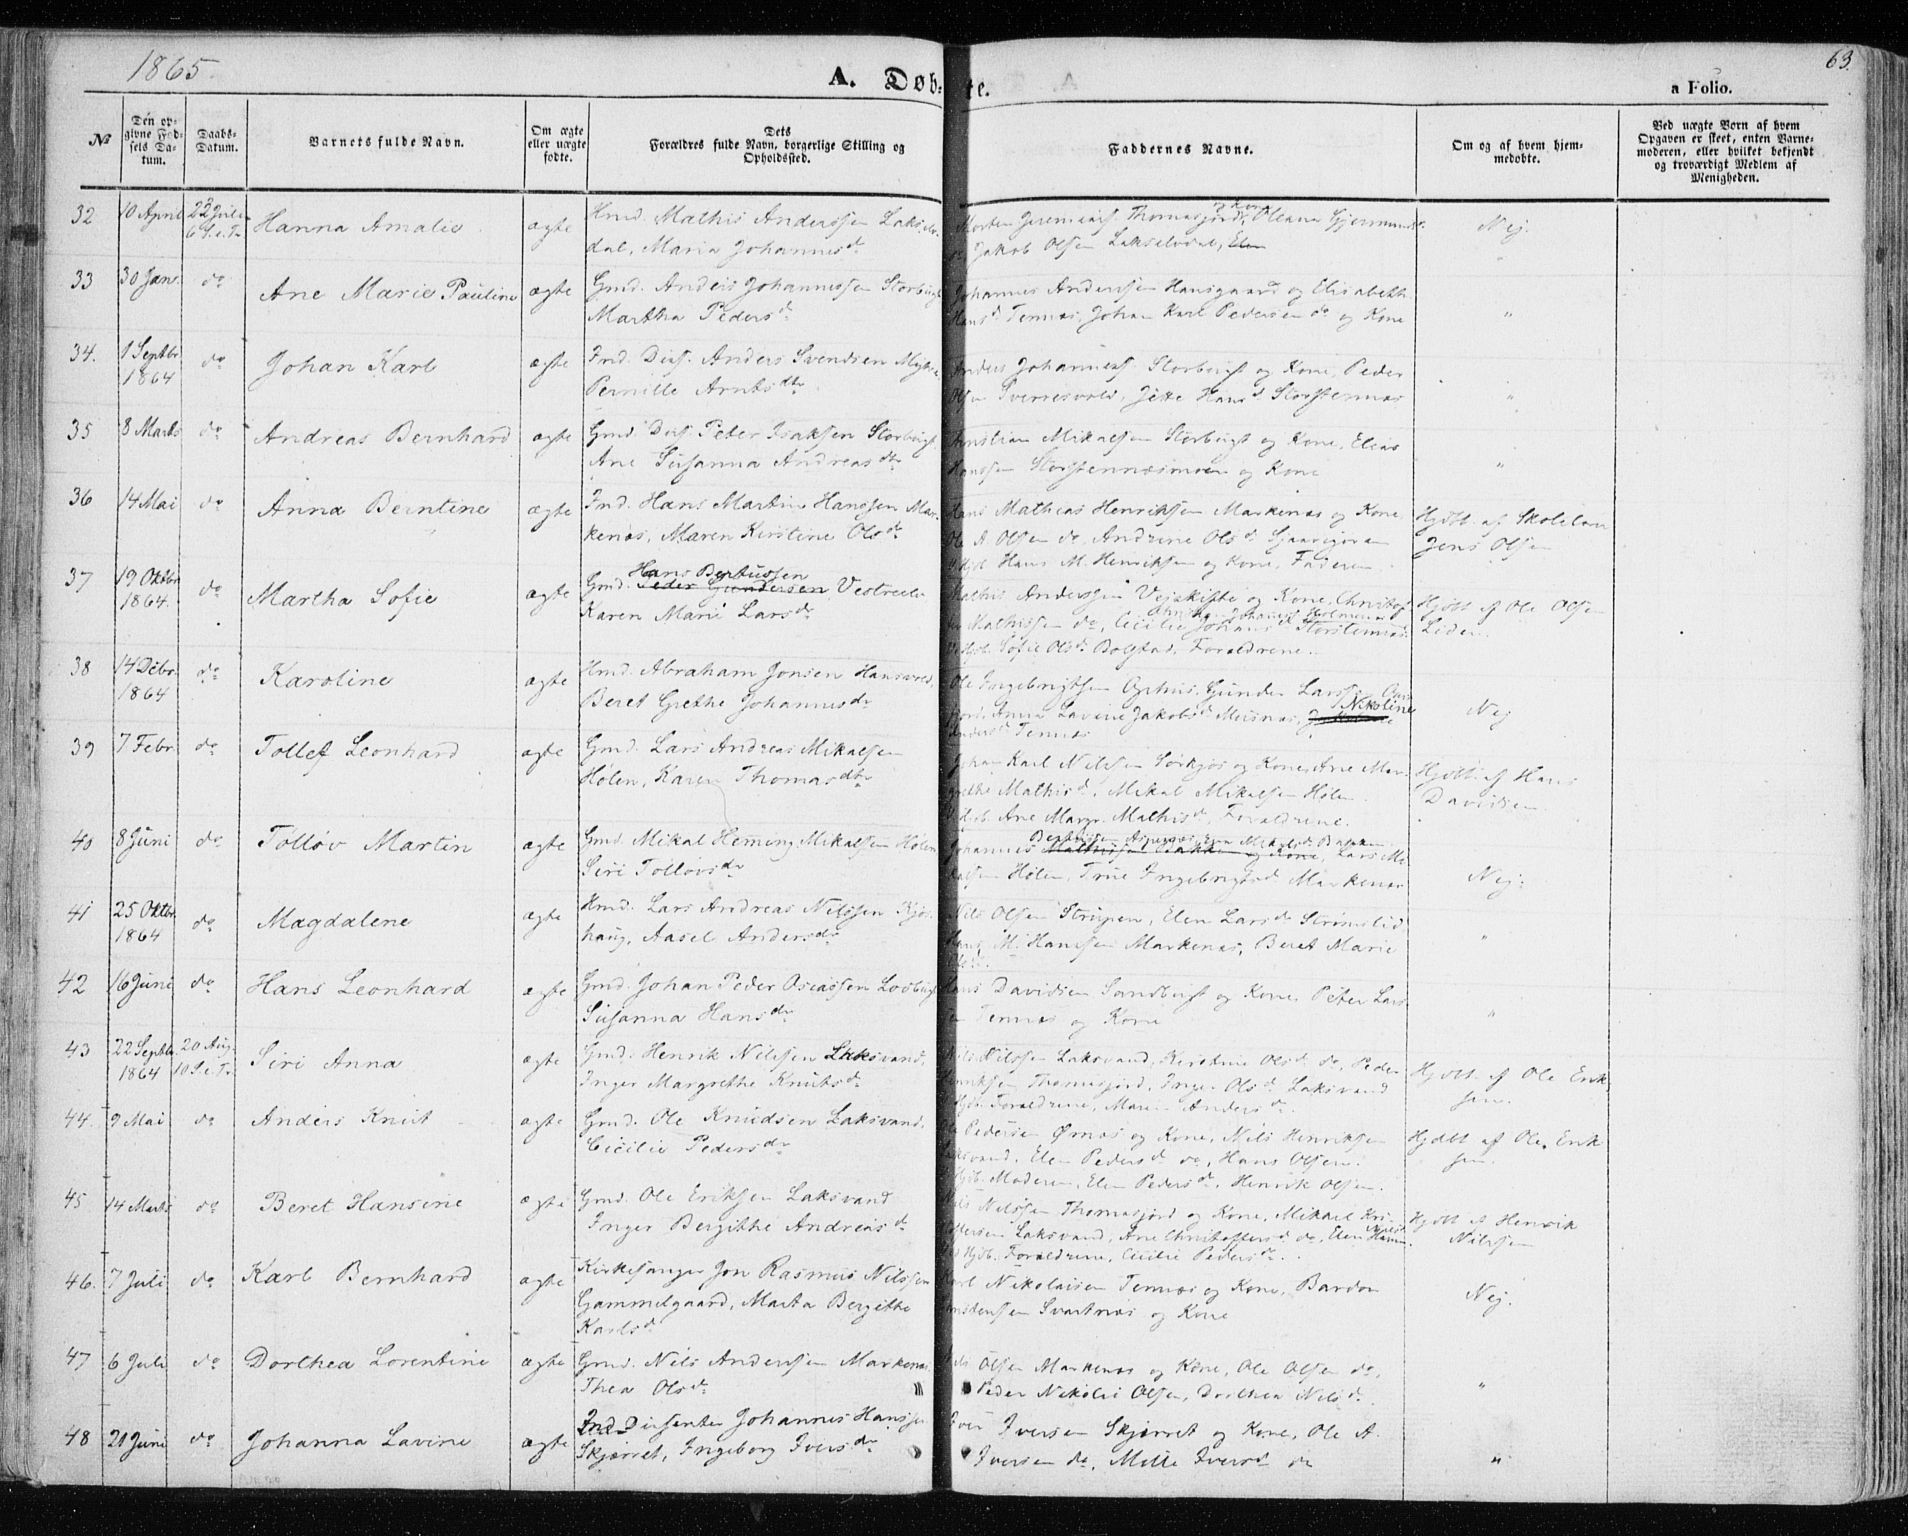 1865
63.
A. Døb-te.
a Folio.
№
Den opgivne Fødsels Datum.
Daabs-Datum.
Barnets fulde Navn.
Om ægte eller uægte fødte.
Dets Forældres fulde Navn, borgerlige Stilling og Opholdssted.
Faddernes Navne.
Om og af hvem hjemmedøbte.
Ved uægte Børn af hvem Opgaven er skeet, enten Barnemoderen, eller hvilket bekjendt og troværdigt Medlem af Menigheden.
32 10 April 23 Juli Hanna Amalie ægte Hmd. Mathis Anderssen Lakselv-
6 S. e. Tr. dal, Maria Johannesdr
Morten Jeremiass. Thomasjord, og Kone Oleana Gjermunds- Nej.
Jakob Olsen Lakselvdal, Elen
33 30 Janr. do Ane Marie Pauline ægte Gmd. Anders Johannessen Storbugt
Martha Pedersdr
Johannes Anderssen Hansgaard og Elisabeth "
Hansd Tennæs, Johan Karl Pedersen do og Kone
34. 1 Septbr do Johan Karl ægte Ind. Diss. Anders Svendsen
1864 Pernille Arntsdtr
Anders Johanness. Storbugt og Kone, Peder "
Olsen Sverresvold, Jette Hansd Storstennæs
35 8 Marts do Andreas Bernhard ægte Gmd. Diss. Peter Isaksen Storbugt
Ane Susanna Andreasdtr
Kristian Mikalsen Storbugt og Kone, Elias "
Hanssen Storstennæsmoen og Kone
36 14 Mai do Anna Berntine ægte Ind. Hans Martin Hanssen Mar-
kenæs, Maren Kirstine Olsdr
Hans Mathias Henriksen Markenæs og Kone Hjdøbt. af Skolelær
Ole A Olsen do, Andrine Olsd Jens Olsen
Hans M. Henriksen og Kone, Faderen.
37 19 Oktbr do Martha Sofie ægte Hans Bertussen
1864. Gmd. Peder Gundersen Vestre
Karen Marie Larsdr
Mathis Anderssen Vejskifte og Kone, Christof- Hjdbt af Ole Olsen
fer Mathissen do, Cecilie Johansd Storstennæs. Leden.
Sofie Olsd Bolstad, Forældrene.
38 14 Debr. do Karoline ægte Hmd. Abraham Jonsen Hansvold,
1864 Beret Grethe Johannesdr
Ole Ingebrigtsen Opthus, Gunder Larss. Nej
Anna Lavine Jakobsd Mesnæs, Nikoline
Andersd Tennæs
39 7 Febr do Tollef Leonhard ægte Gmd. Lars Andreas Mikalsen
Hølen, Karen Thomasdtr
Johan Karl Nilssen Sørkjos og Kone, Ane Mar- Hjdbt. af Hans
grethe Mathisd, Mikal Mikalsen Hølen. Davidsen
Ane Margr. Mathisd, Forældrene.
40 8 Juni do Tolløv Martin ægte Gmd. Mikal Heming Mikalsen Hølen
Siri Tolløvsdr
Johannes Mathissen Bakken og Kone, Lars Mi Nej.
kalsen Hølen, Trine Ingebrigtsd Markenæs
41 25 Oktbr. do Magdalene ægte Hmd. Lars Andreas Nilssen Kjøs-
1864 haug, Aasel Andersdr
Nils Olsen Strupen, Elen Larsd Strømslid "
Hans M. Hanssen Markenæs, Beret Marie
Olsd.
42 16 Juni do Hans Leonhard ægte Gmd. Johan Peder Osiassen
Susanna Hansdr
Hans Davidsen Sandbugt og Kone, Peter Lars- "
sen Tennæs og Kone
43 22 Septbr. 20 Aug. Siri Anna ægte Gmd. Henrik Nilssen Laksvand,
1864 10 S. e. Tr. Inger Margrethe Knutsdr
Nils Nilssen Laksvand, Kirstine Olsd do, Peder Hjdbt. af Ole Erik
Henriksen Thomasjord, Inger Olsd Laksvand sen.
Forældrene, Maren Andersd.
44. 9 Mai do Anders Knut ægte Gmd. Ole Knudsen Laksvand,
Cecilie Pedersdr
Pedersen Ørnæs og Kone, Nils Henriksen Hjdbt af Ole Erik
Laksvand, Elen Pedersd do, Hans Olsen. sen.
Moderen, Elen Pedersd, Henrik Olsen.
45 14 Marts do Beret Hansine ægte Gmd. Ole Eriksen Laksvand
Inger Bergithe Andreasdr
Nils Nilssen Thomasjord og Kone, Mikael Kri- Hjdbt af Henrik
stoffersen Laksvand, Ane Christoffersd do, Elen Nilssen
Forældrene, Cecilie Pedersd.
46. 7 Juli do Karl Bernhard ægte Kirkesanger Jon Rasmus Nilssen
Gammelgaard, Marta Bergithe
Karlsd
Karl Nikolaisen Tennæs og Kone, Bardon Nej.
Svartnæs og Kone
47 6 Juli do Dorthea Lorentine ægte Gmd. Nils Anderssen Markenæs
Thea Olsdr
Nils Olsen Markenæs og Kone, Ole Olsen do, "
Peder Nikolai Olsen, Dorthea Nilsd.
48 21 Juni do Johanna Lavine ægte Ind Dissenter Johannes Hanssen
Skjørret, Ingeborg Iversdr
Iver Iversen Skjørret og Kone, Ole A. "
Iversen do, Mille Iversd do